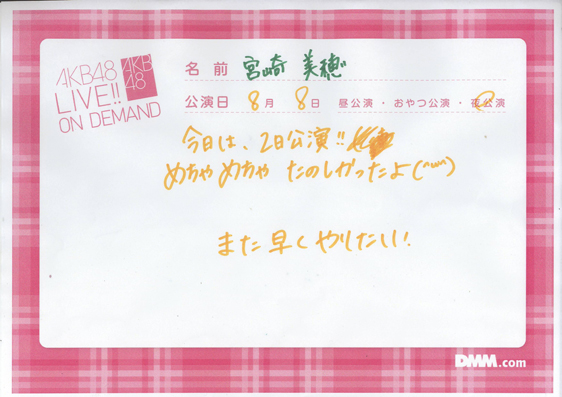 AKB48
LIVE!!
ON DEMAND
AKB
48
名前 宮崎 美穂
公演日 8月 8日 昼公演・おやつ公演・夜公演
今日は、2日公演!!
めちゃめちゃ たのしかったよ(^ω^)
また早くやりたい!
DMM.com